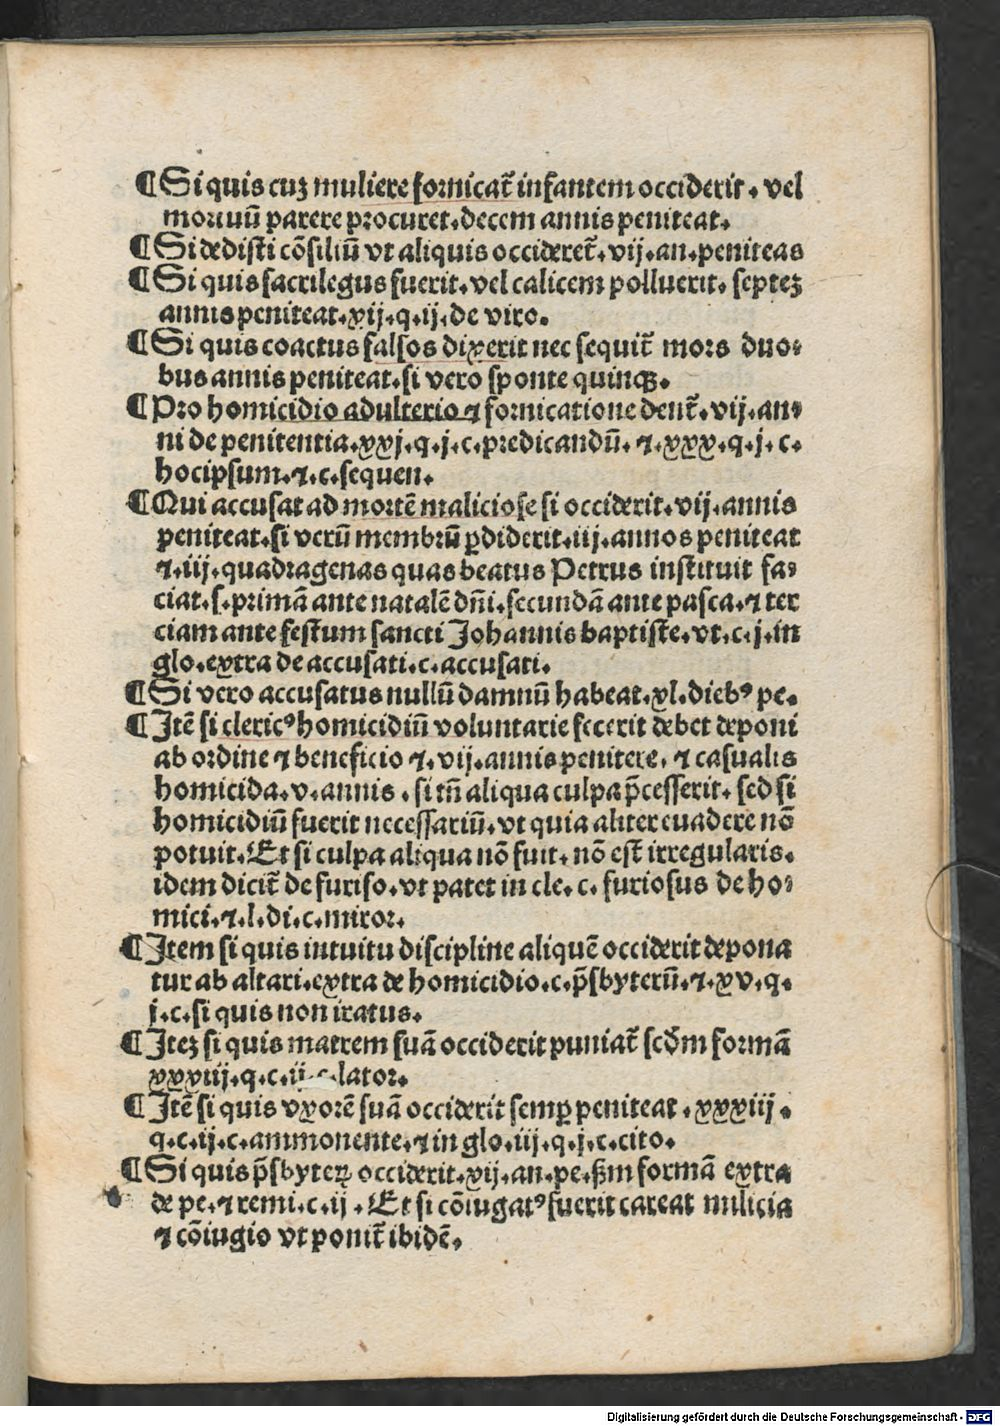 ¶ Si quis cuʒ muliere fornicat̄ infantem occiderit. vel
mortuū parere procuret. decem annis peniteat.
¶ Si dedisti cōsiliū vt aliquis occideret̄. vij. an. peniteas
¶ Si quis sacrilegus fuerit. vel calicem polluerit. septeʒ
annis peniteat. xij. q. ij. de viro.
¶ Si quis coactus falsos dixerit nec sequit̄ mors duo⸗
bus annis peniteat. si vero sponte quinqꝫ.
¶ Pro homicidio adulterio ⁊ fornicatione dent̄. vij. an⸗
ni de penitentia. xxj. q. j. c. predicandū. ⁊. xxx. q. j. c.
hocipsum. ⁊. c. sequen.
¶ Qui accusat ad mortē maliciose si occiderit. vij. annis
peniteat. si verū membrū ꝑdiderit. iij. annos peniteat
⁊. iij. quadragenas quas beatus Petrus instituit fa⸗
ciat. s. primā ante natalē dn̄i. secundā ante pasca. ⁊ ter
ciam ante festum sancti Johannis baptiste. vt. c. j. in
glo. extra de accusati. c. accusati.
¶ Si vero accusatus nullū damnū habeat. xl. diebꝰ pe.
¶ Jtē si clericꝰ homicidiū voluntarie fecerit debet deponi
ab ordine ⁊ beneficio ⁊. vij. annis penitere. ⁊ casualis
homicida. v. annis. si tn̄ aliqua culpa p̄cesserit. sed si
homicidiū fuerit necessariū. vt quia aliter euadere nō
potuit. Et si culpa aliqua nō fuit. nō est irregularis.
idem dicit̄ de furiso. vt patet in cle. c. furiosus de ho⸗
mici. ⁊. l. di. c. miror.
¶ Jtem si quis intuitu discipline aliquē occiderit depona
tur ab altari. extra de homicidio. c. p̄sbyterū. ⁊. xv. q.
j. c. si quis non iratus.
¶ Jteʒ si quis matrem suā occiderit puniat̄ scd̄m formā
xxxiij. q. c. ij. lator.
¶ Jtē si quis vxorē suā occiderit semꝑ peniteat. xxxiij.
q. c. ij. c. ammonente. ⁊ in glo. iij. q. j. c. cito.
¶ Si quis p̄sbyteꝝ occiderit. xij. an. pe. ßm formā extra
de pe. ⁊ remi. c. ij. Et si cōiugatꝰ fuerit careat milicia
⁊ cōiugio vt ponit̄ ibidē.
Digitalisierung gefördert durch die Deutsche Forschungsgemeinschaft - DFG